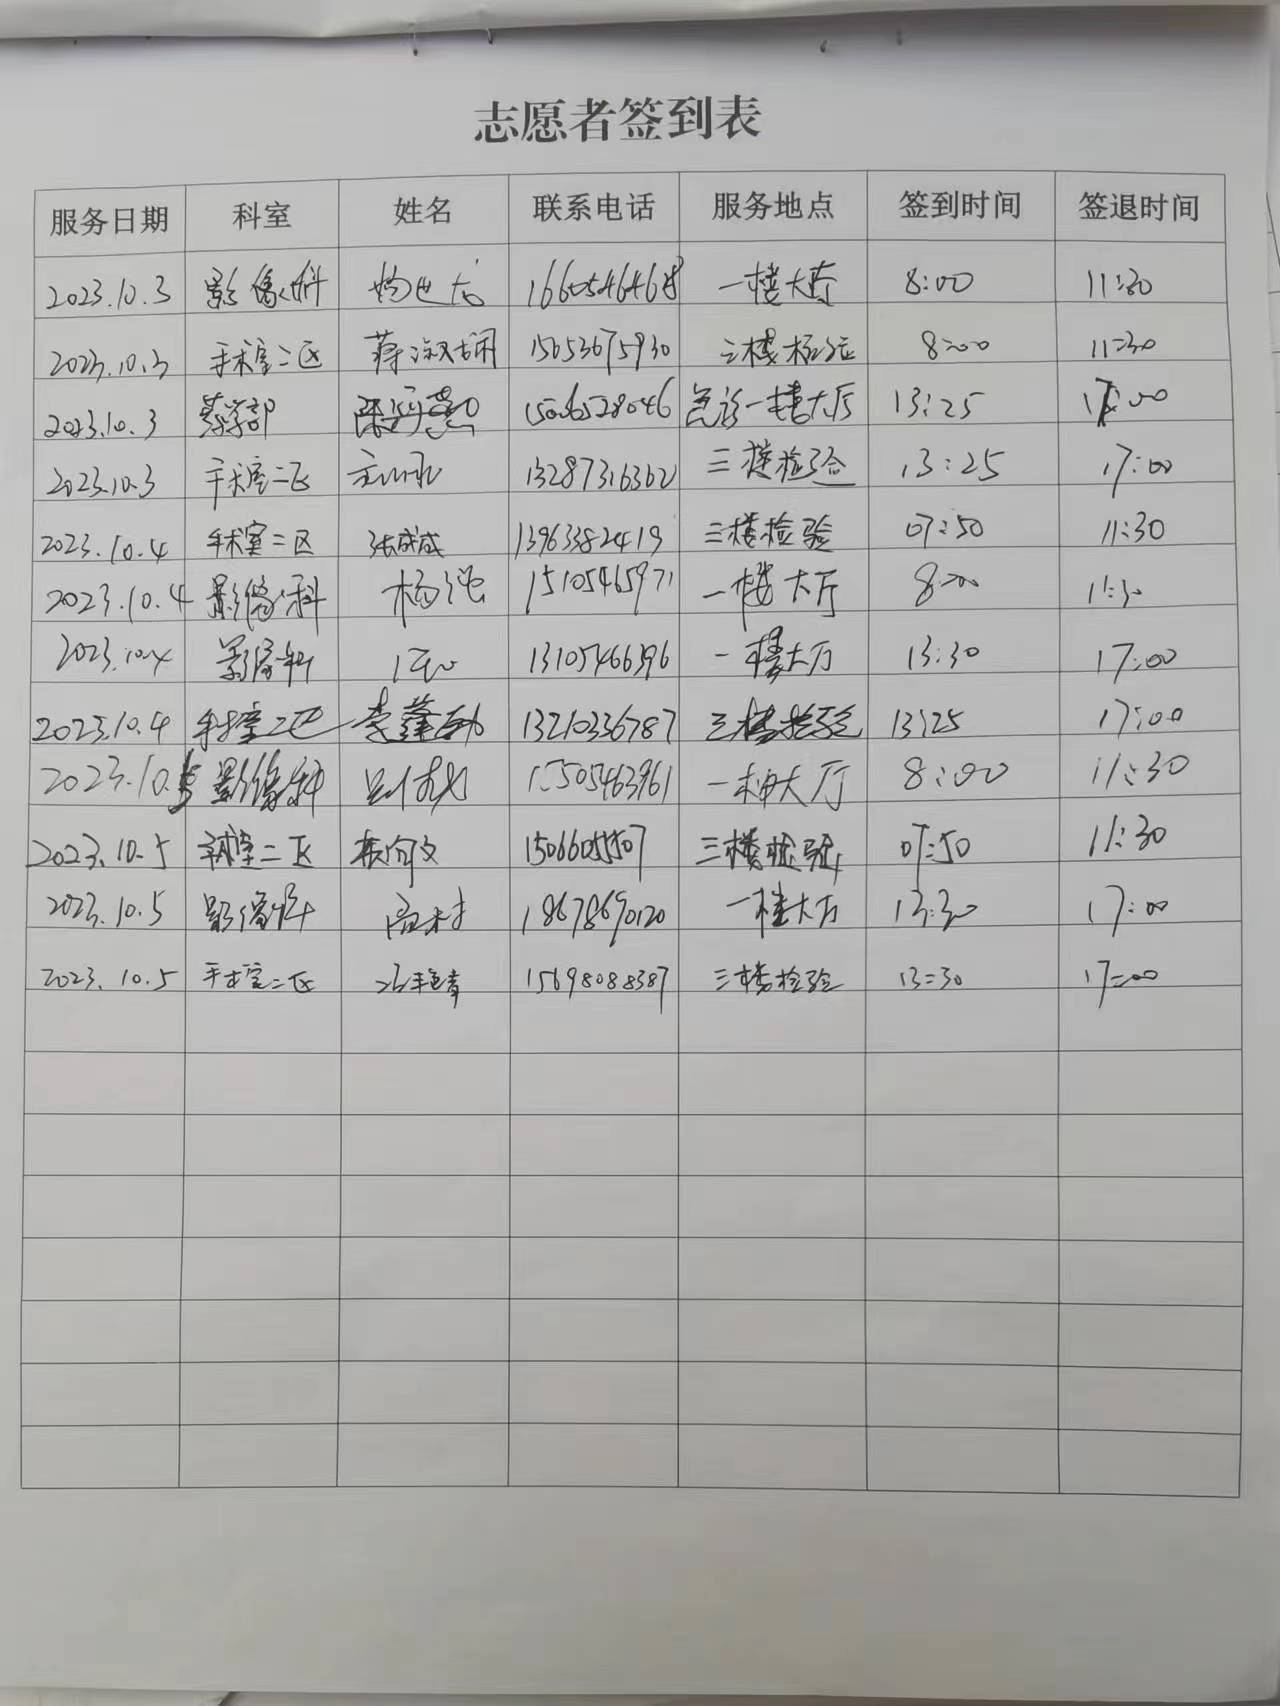 志愿者签到表
服务日期 科室 姓名 联系电话 服务地点 签到时间 签退时间
2023.10.3 影像科 16605464648 一楼大厅 8:00 11:30
2023.10.3 手术室二区 15653675930 三楼检验 8:00 11:30
2023.10.3 药学部 15006528046 急诊一楼大厅 13:25 17:00
2023.10.3 手术室二区 13287316362 三楼检验 13:25 17:00
2023.10.4 手术室二区 张成成 13963382419 三楼检验 07:50 11:30
2023.10.4 影像科 杨强 15105465971 一楼大厅 8:00 11:30
2023.10.4 影像科 13105466396 一楼大厅 13:30 17:00
2023.10.4 手术室二区 13210336787 三楼检验 13:25 17:00
2023.10.5 影像科 15505463961 一楼大厅 8:00 11:30
2023.10.5 手术室二区 15066055507 三楼检验 07:50 11:30
2023.10.5 影像科 高村 18678690120 一楼大厅 13:30 17:00
2023.10.5 手术室二区 15698088387 三楼检验 13:30 17:00